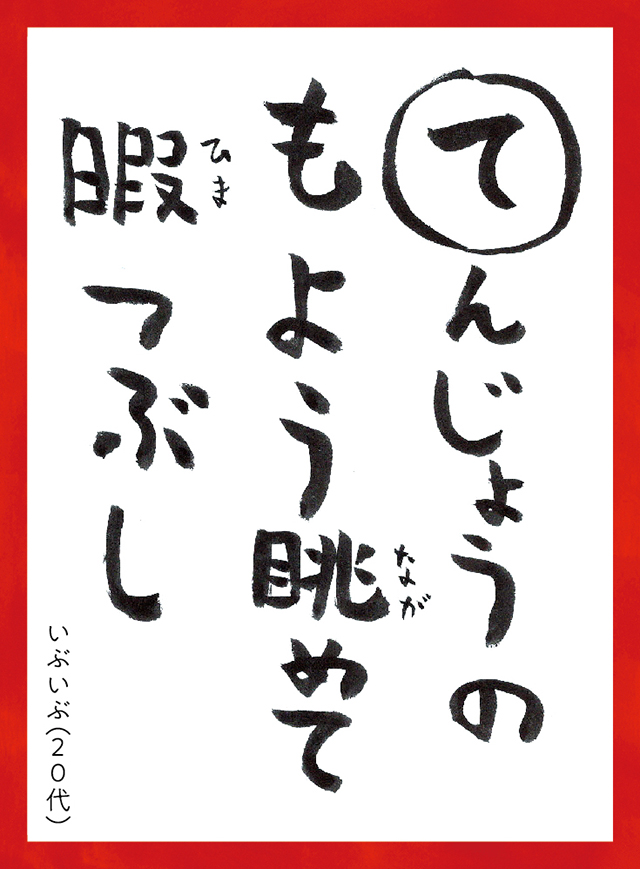 てんじょうの
もよう眺めて
なが
暇つぶし
ひま
いぶいぶ(20代)